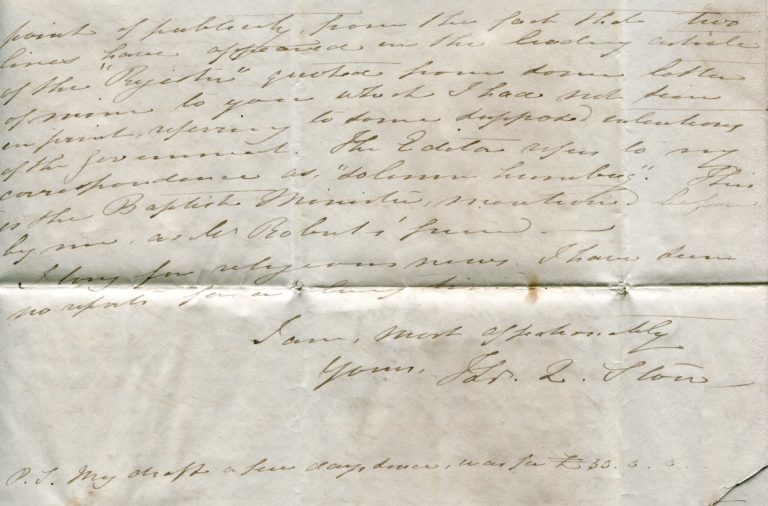 point of publicity, from the fact that two
lines have appeared in the leading article
of the "Register" quoted from some letter
of mine to you which I had not seen
in print, referring to some supposed intentions
of the Government. The Editor refers to my
correspondence as, "solemn humbug". This
is the Baptist Minister, mentioned before
by me, as Mr Roberts' friend —
I long for religious news. I have seen
no reports for a long time.
I am, most affectionately
Yours, Thos. Q. Stow
P.S. My draft a few days since, was for £30. 0. 0.